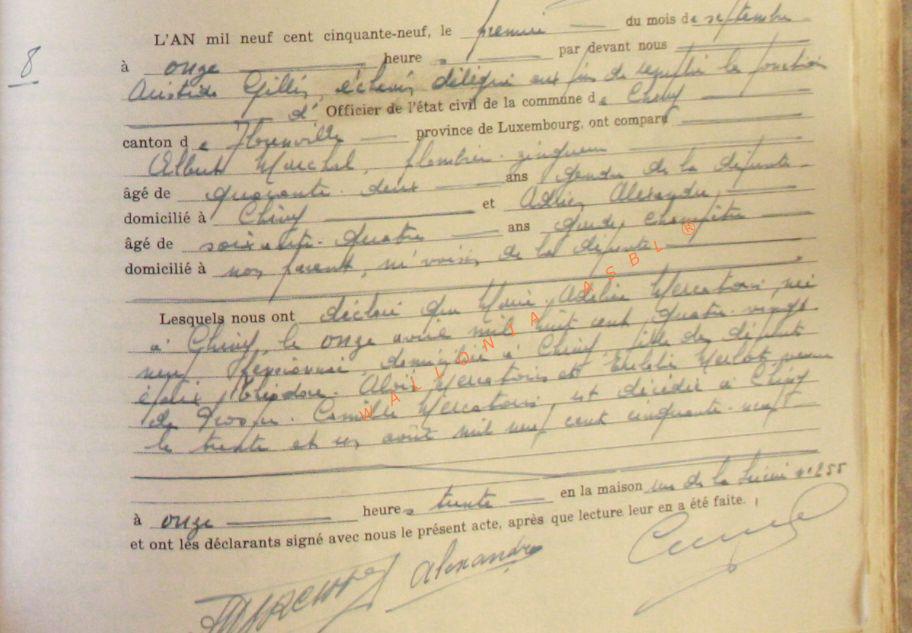 8
L'AN mil neuf cent cinquante-neuf, le premier du mois de septembre
à onze heure s par devant nous
Aristide Gillis, échevin délégué aux fins de remplir la fonction
d' Officier de l'état civil de la commune de Chiny
canton de Florenville province de Luxembourg, ont comparu
Albert Marchal, plombier-zingueur
âgé de quarante-deux ans gendre de la défunte
domicilié à Chiny et Alexandre,
âgé de soixante-quatre ans garde champêtre
domicilié à non parent, ni voisin de la défunte
Lesquels nous ont déclaré que Marie Adeline Mercatoris, née
à Chiny, le onze avril mil huit cent quatre-vingt
neuf, pensionnée, domiciliée à Chiny, fille des défunts
époux Mercatoris et veuve
de Camille Mercatoris, est décédée à Chiny
le trente et un août mil neuf cent cinquante-neuf
à onze heures trente en la maison rue de la n° 255
et ont les déclarants signé avec nous le présent acte, après que lecture leur en a été faite.
Alexandre
WALLONIA ASBL ®